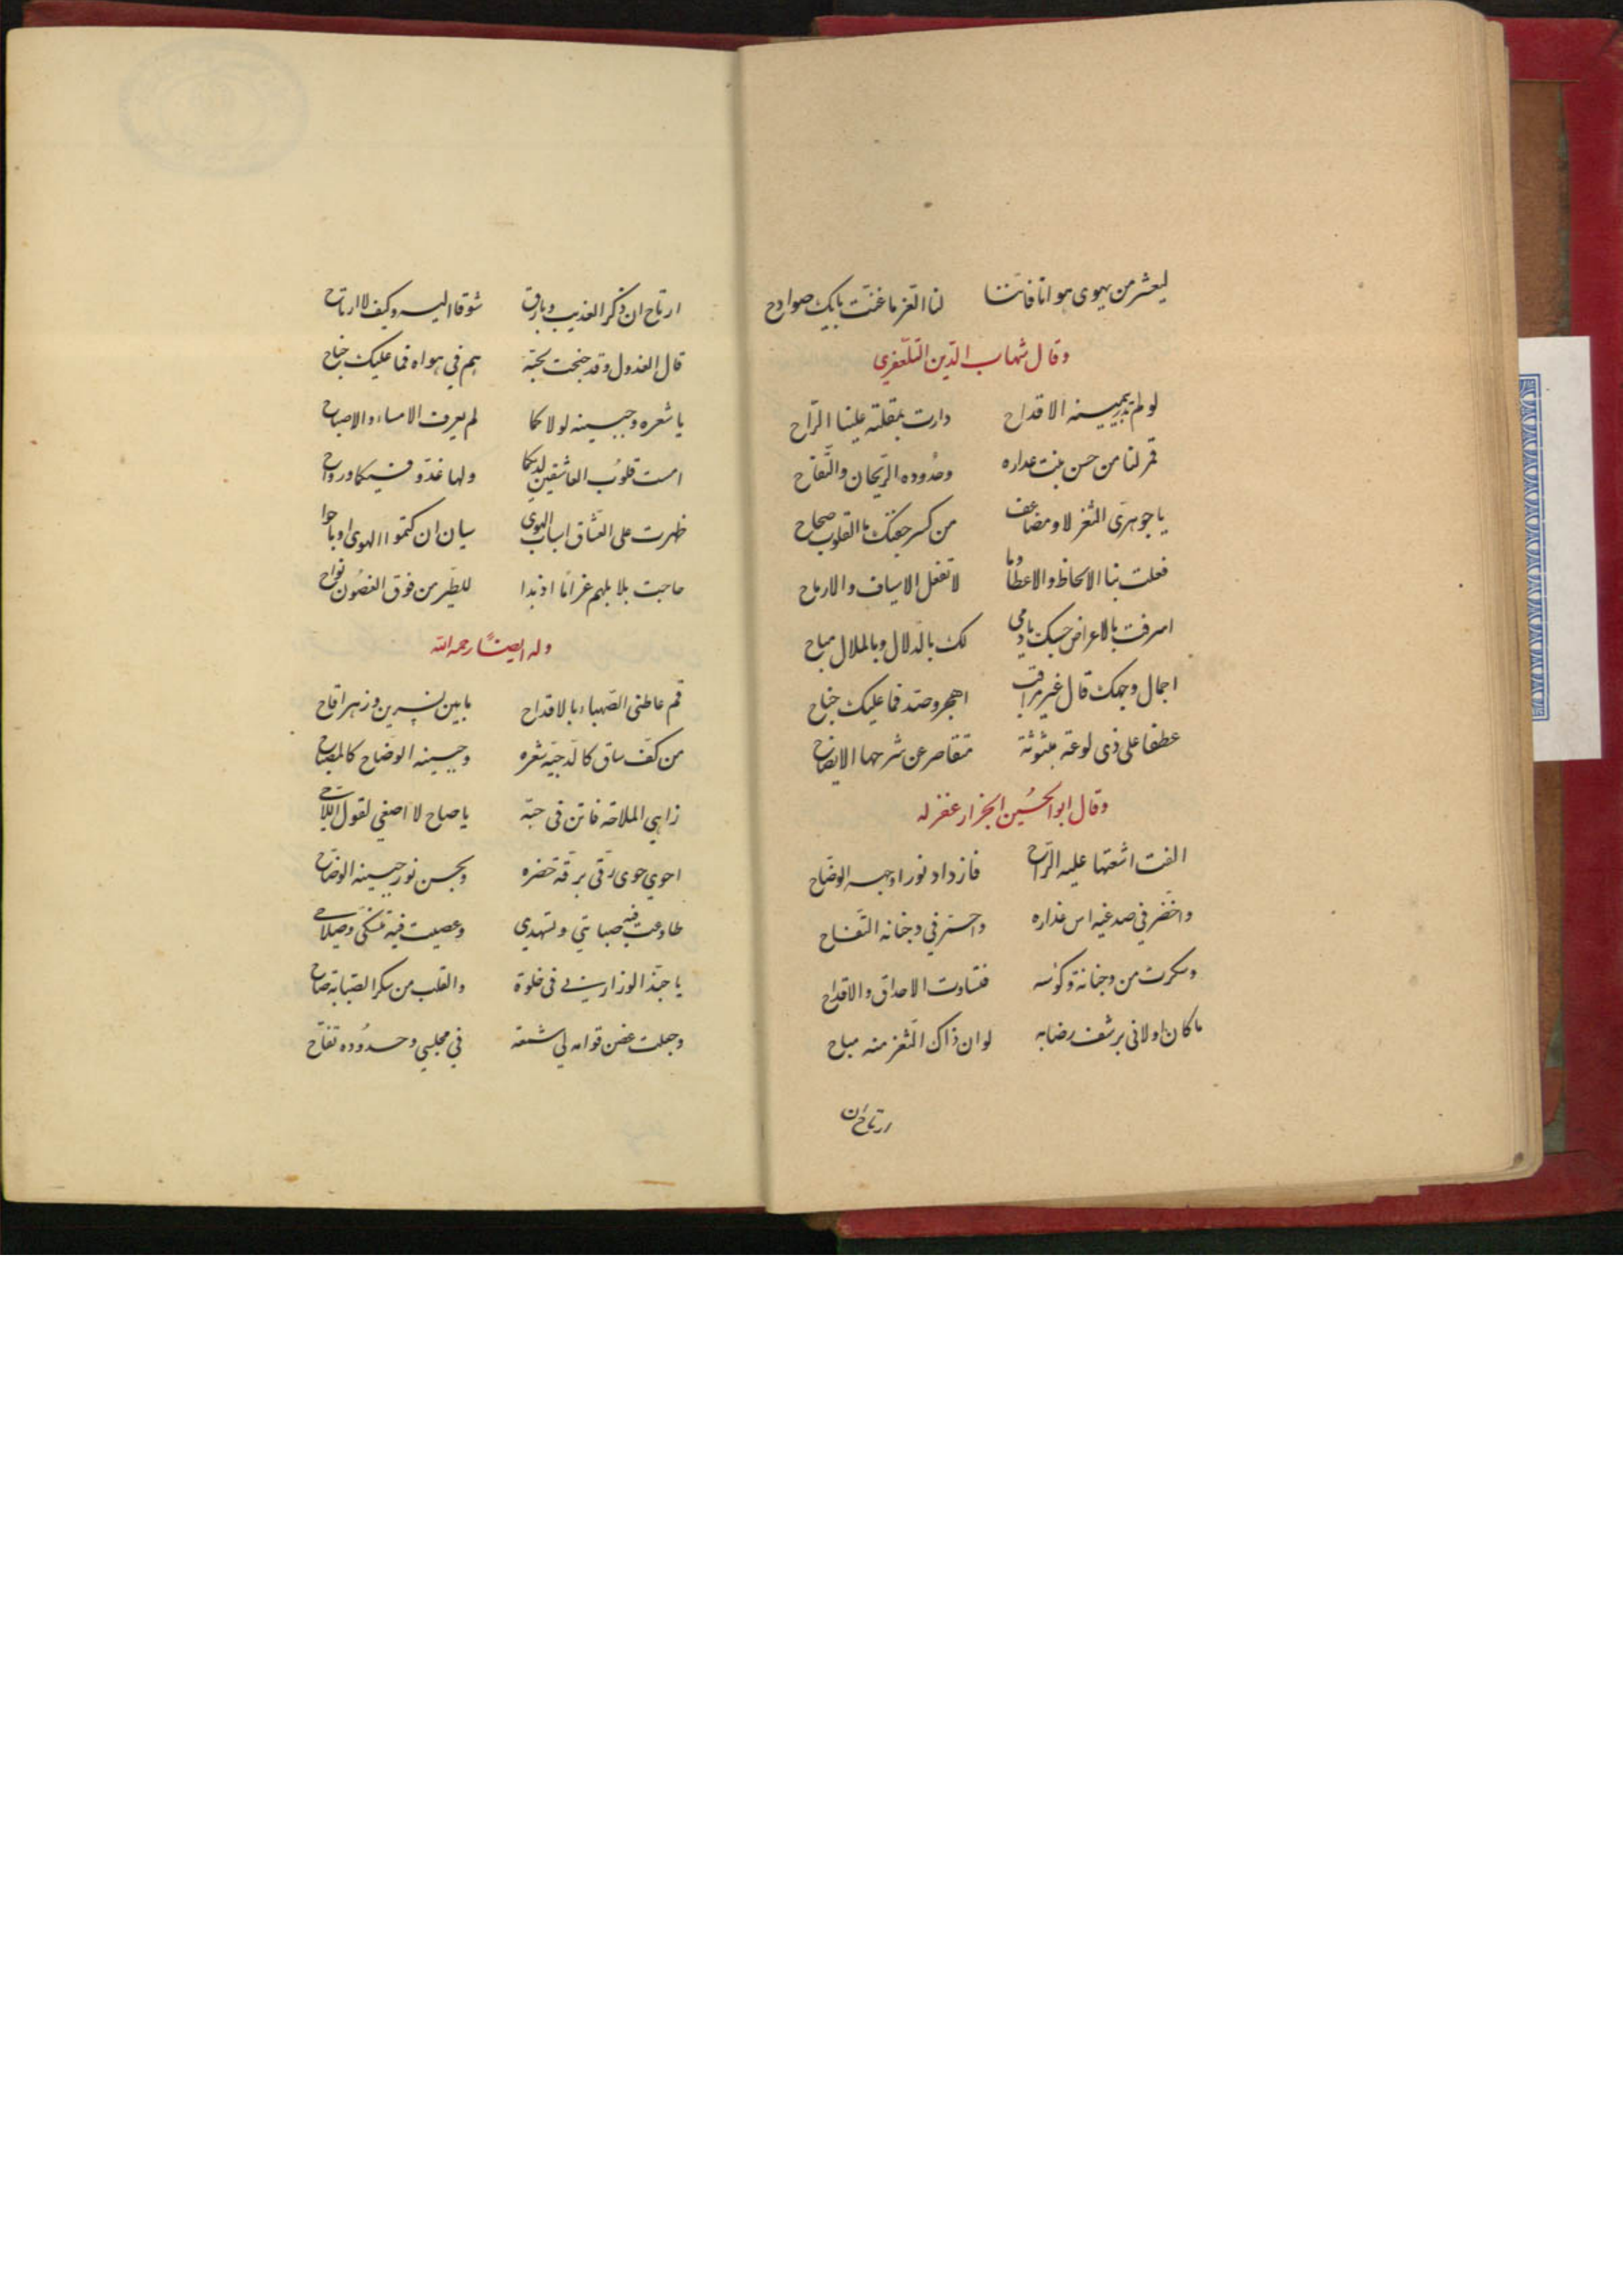 ليعشر من يهوى هوانا فاننا لنا العز ما غنت بايك صوادح
وقال شهاب الدين التلعفري
لو لم تدر بيمينه الاقداح دارت بمقلته علينا الراح
قمر لنا من حسن بنت عداره وخدوده الريحان والتفاح
يا جوهري الثغر لا ومضاعف من كسر جفنك ما القلوب صحاح
فعلت بنا الالحاظ والاعطاف ما لا تفعل الاسياف والارماح
اسرفت بالاعراض حسبك يا دمي لك بالدلال وبالملال مباح
اجمال وجهك قال غير مراقب اهجر وصد فما عليك جناح
عطفا على ذي لوعة مبثوثة متقاصر عن شرحها الايضاح
وقال ابو الحسين الجزار غفر له
القت اشعتها عليه الراح فازداد نورا وجهه الوضاح
واخضر في صدغيه اس عذاره واحمر في وجناته التفاح
وسكرت من وجناته وكؤسه فتساوت الاحداق والاقداح
ما كان اولاني برشف رضابه لو ان ذاك الثغر منه مباح
ارتاح ان
ارتاح ان ذكر العذيب وبارق شوقا اليه وكيف لا ارتاح
قال العذول وقد جنحت لحبه هم في هواه فما عليك جناح
يا شعره وجبينه لولاكما لم يعرف الامساء والاصباح
امست قلوب العاشقين لديكما ولها غدو فيكما ورواح
ظهرت على العشاق اسباب الهوى سيان ان كتموا الهوى او باحوا
هاجت بلابلهم غراما اذ بدا للطير من فوق الغصون نواح
وله ايضا رحمه الله
قم عاطني الصهباء بالاقداح ما بين نسرين وزهر اقاح
من كف ساق كالدجنة شعره وجبينه الوضاح كالمصباح
زاهي الملاحة فاتن في حبه يا صاح لا اصغي لقول اللاحي
احوى حوى رقي برقة خصره وبحسن نور جبينه الوضاح
طاوعت فيه صبابتي وتسهدي وعصيت فيه تنسكي وصلاحي
يا حبذا لو زارني في خلوة والقلب من سكر الصبابة صاح
وجعلت غصن قوامه لي شمعة في مجلسي وخدوده تفاح